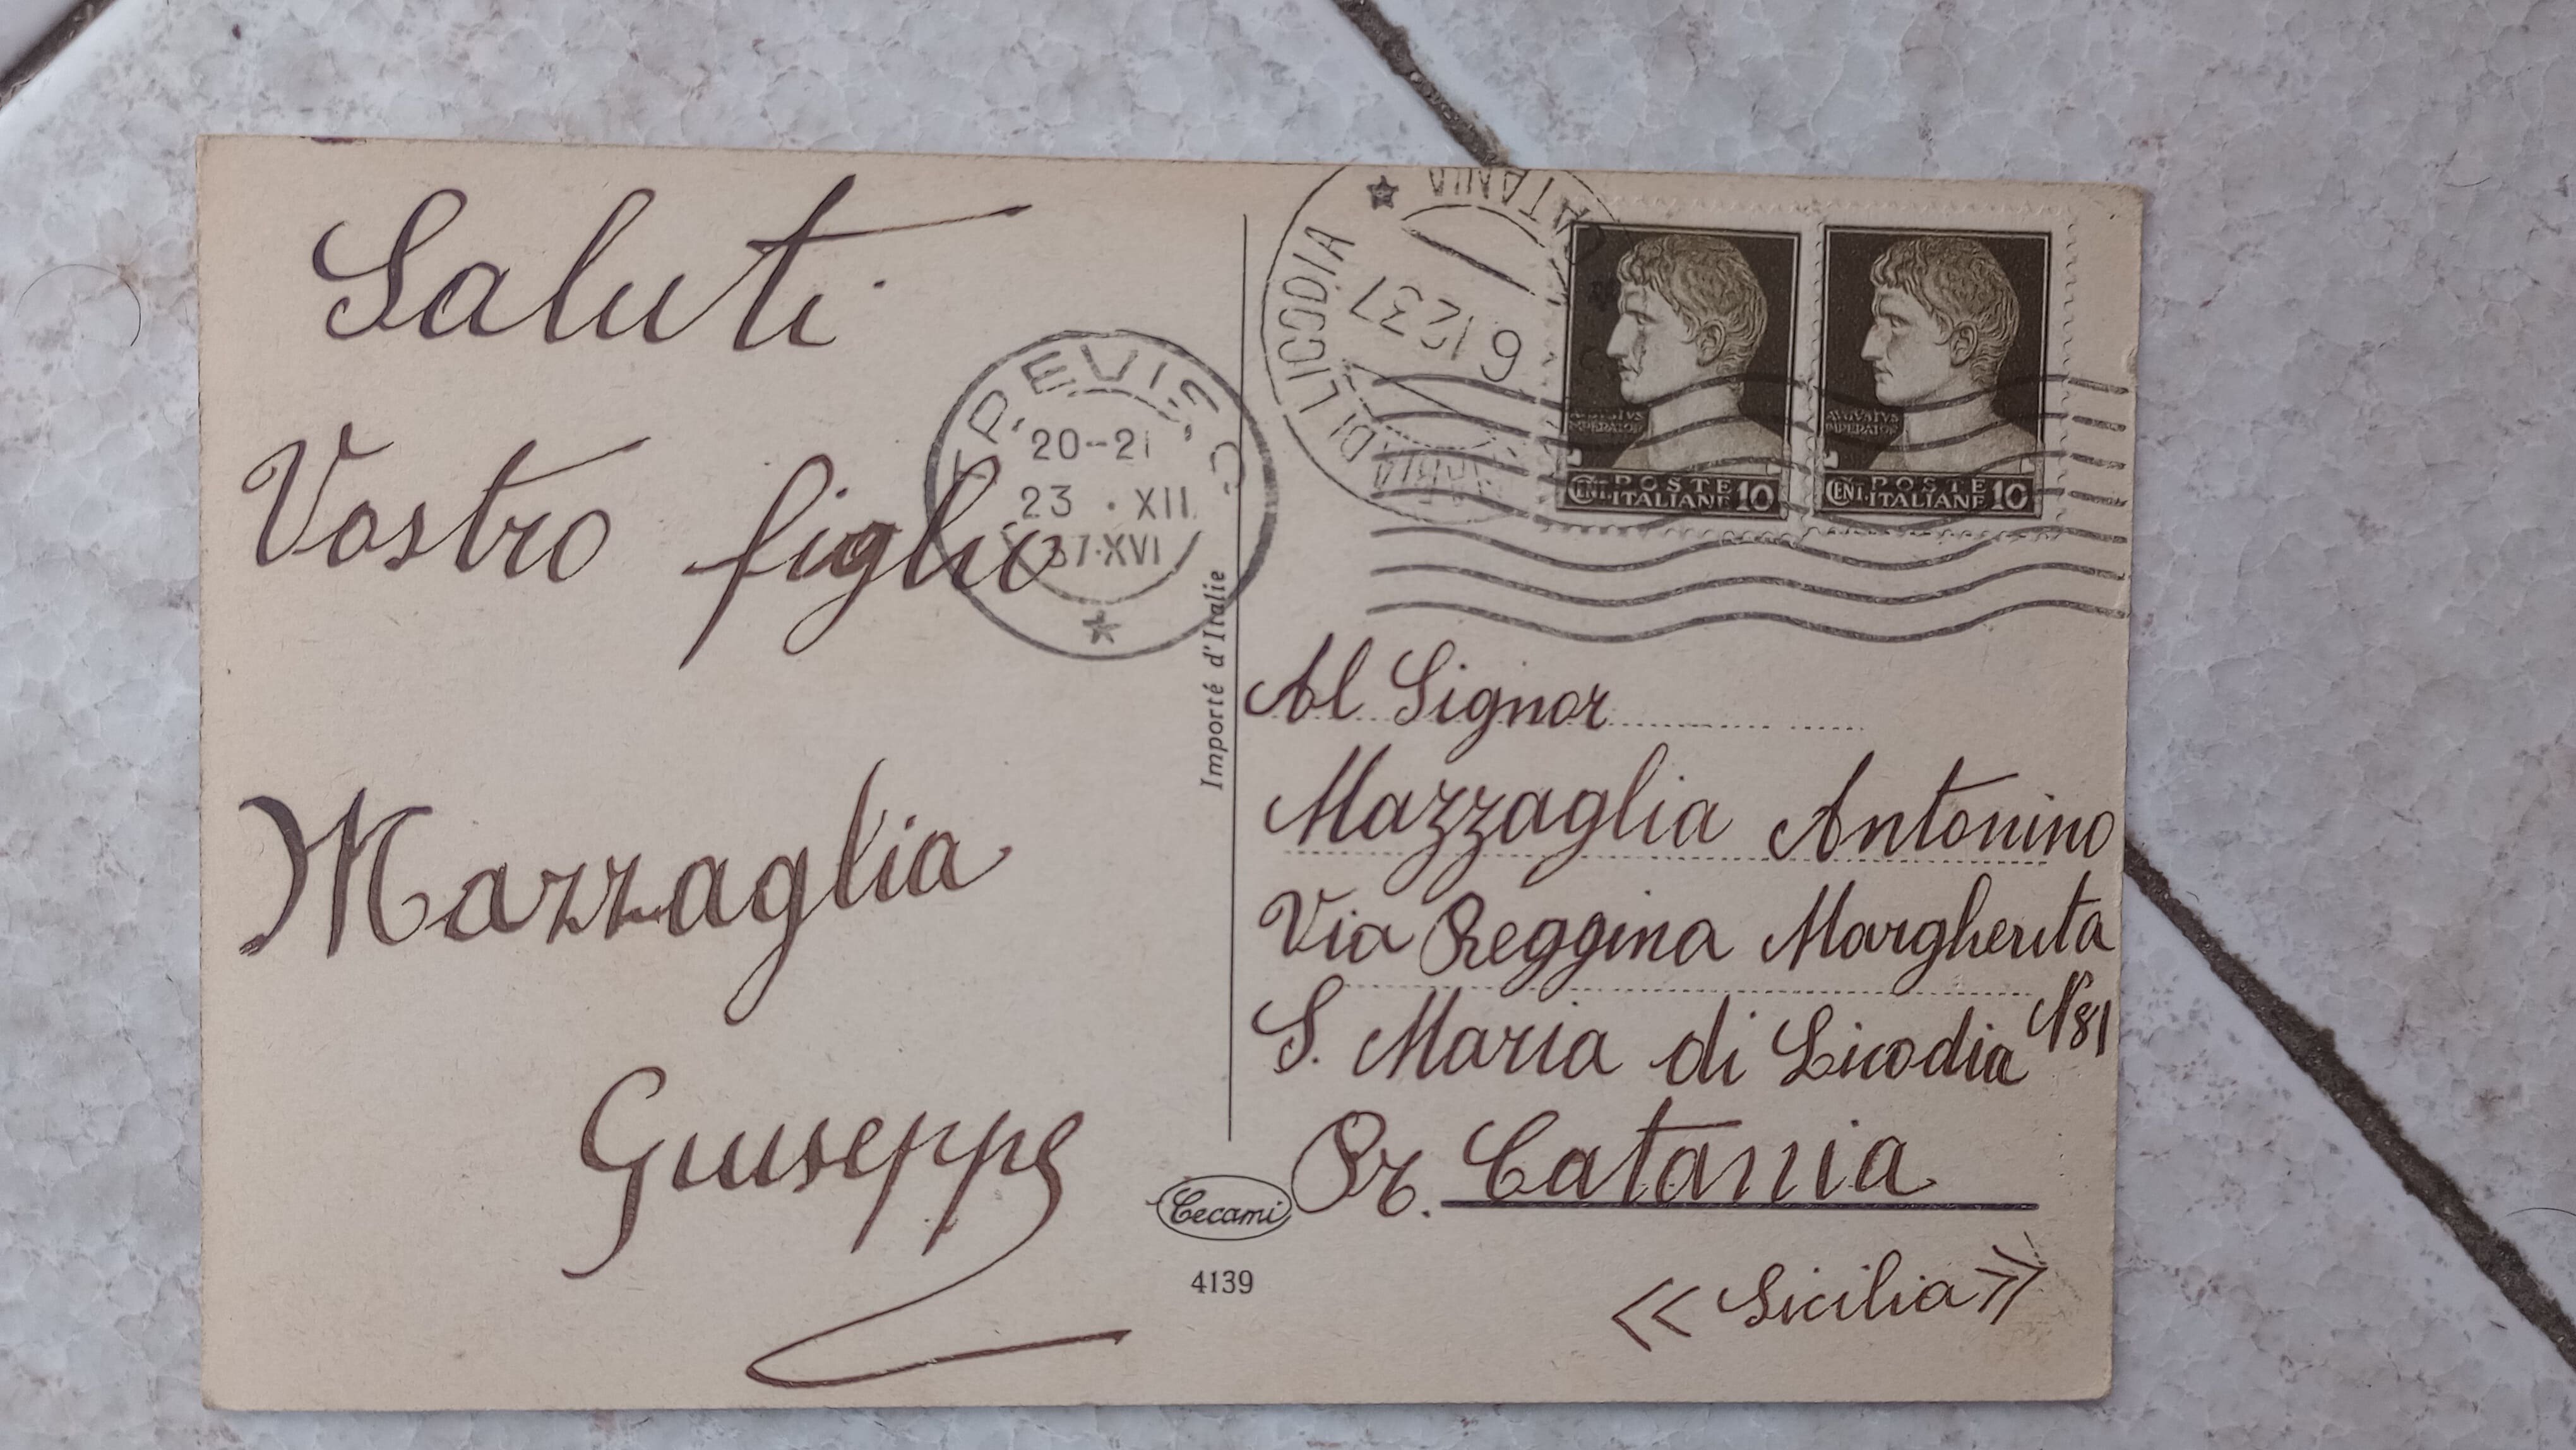 Saluti
Vostro figlio
Mazzaglia
Giuseppe
TREVISO
20-21
23 . XII
37.XVI
Importé d'Italie
Cecami
4139
MARIA DI LICODIA
CATANIA
12 37
AVGVSTVS
IMPERATOR
CENT. POSTE ITALIANE 10
AVGVSTVS
IMPERATOR
CENT. POSTE ITALIANE 10
Al Signor
Mazzaglia Antonino
Via Reggina Margherita
N° 81
S. Maria di Licodia
Pr. Catania
« Sicilia »